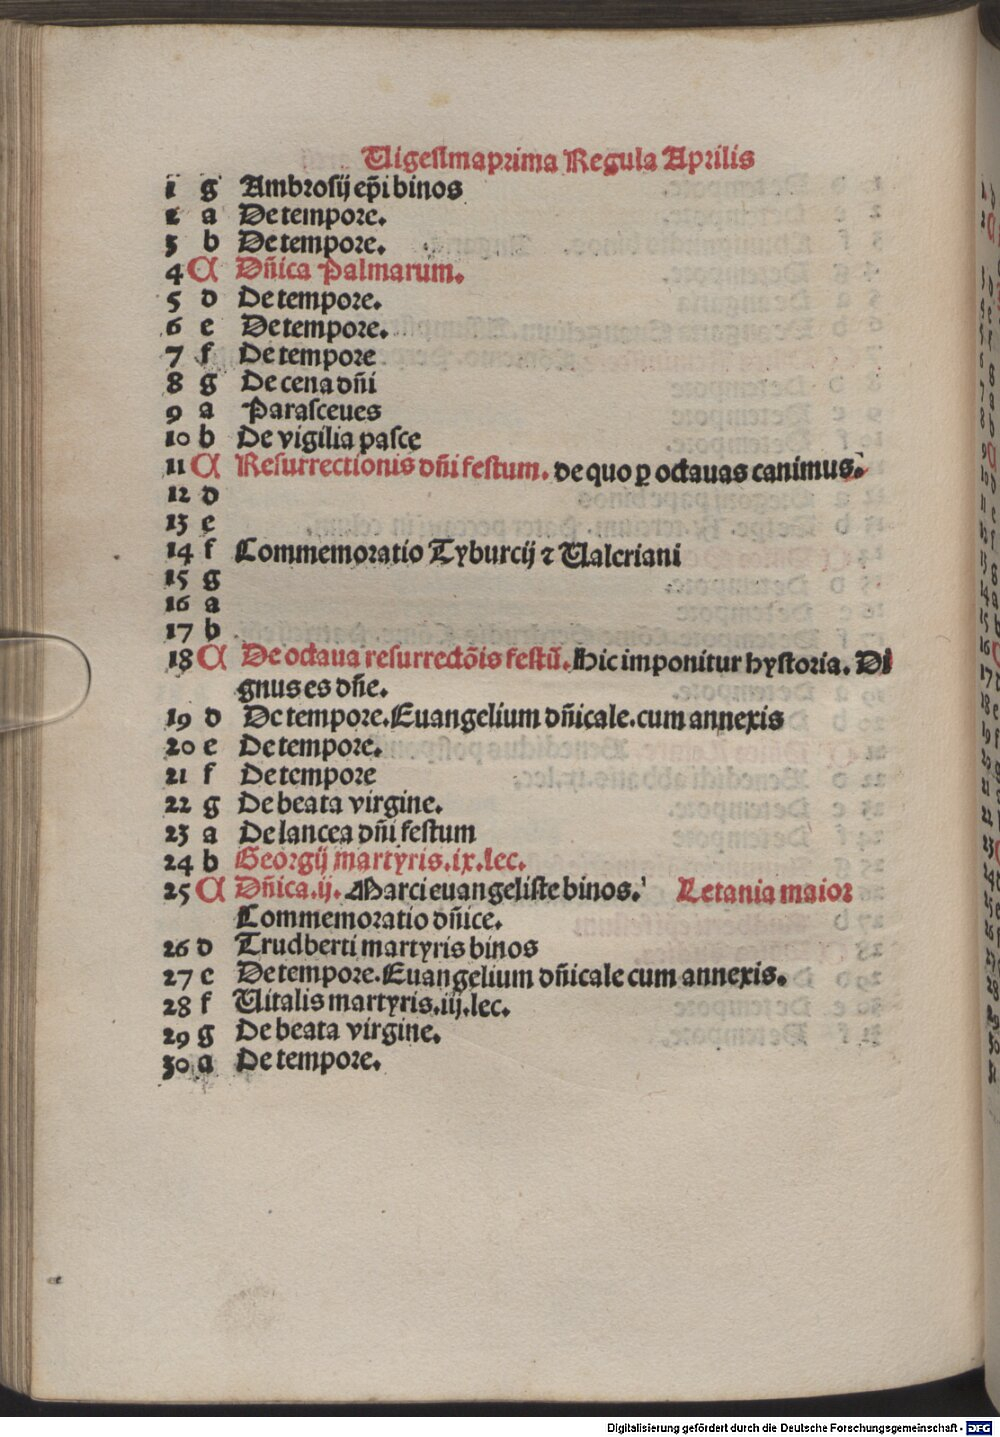 Uigesimaprima Regula Aprilis
1 g Ambrosij ep̄i binos
2 a De tempore.
3 b De tempore.
4 C Dn̄ica Palmarum.
5 d De tempore.
6 e De tempore.
7 f De tempore
8 g De cena dn̄i
9 a Parasceues
10 b De vigilia pasce
11 C Resurrectionis dn̄i festum. de quo ꝑ octauas canimus.
12 d
13 e
14 f Commemoratio Tyburcij ⁊ Ualeriani
15 g
16 a
17 b
18 C De octaua resurrectōis festū. Hic imponitur hystoria. Di
gnus es dn̄e.
19 d De tempore. Euangelium dn̄icale. cum annexis
20 e De tempore.
21 f De tempore
22 g De beata virgine.
23 a De lancea dn̄i festum
24 b Georgij martyris. ix. lec.
25 C Dn̄ica. ij. Marci euangeliste binos. Letania maior
Commemoratio dn̄ice.
26 d Trudberti martyris binos
27 e De tempore. Euangelium dn̄icale cum annexis.
28 f Uitalis martyris. iij. lec.
29 g De beata virgine.
30 a De tempore.
Digitalisierung gefördert durch die Deutsche Forschungsgemeinschaft - DFG